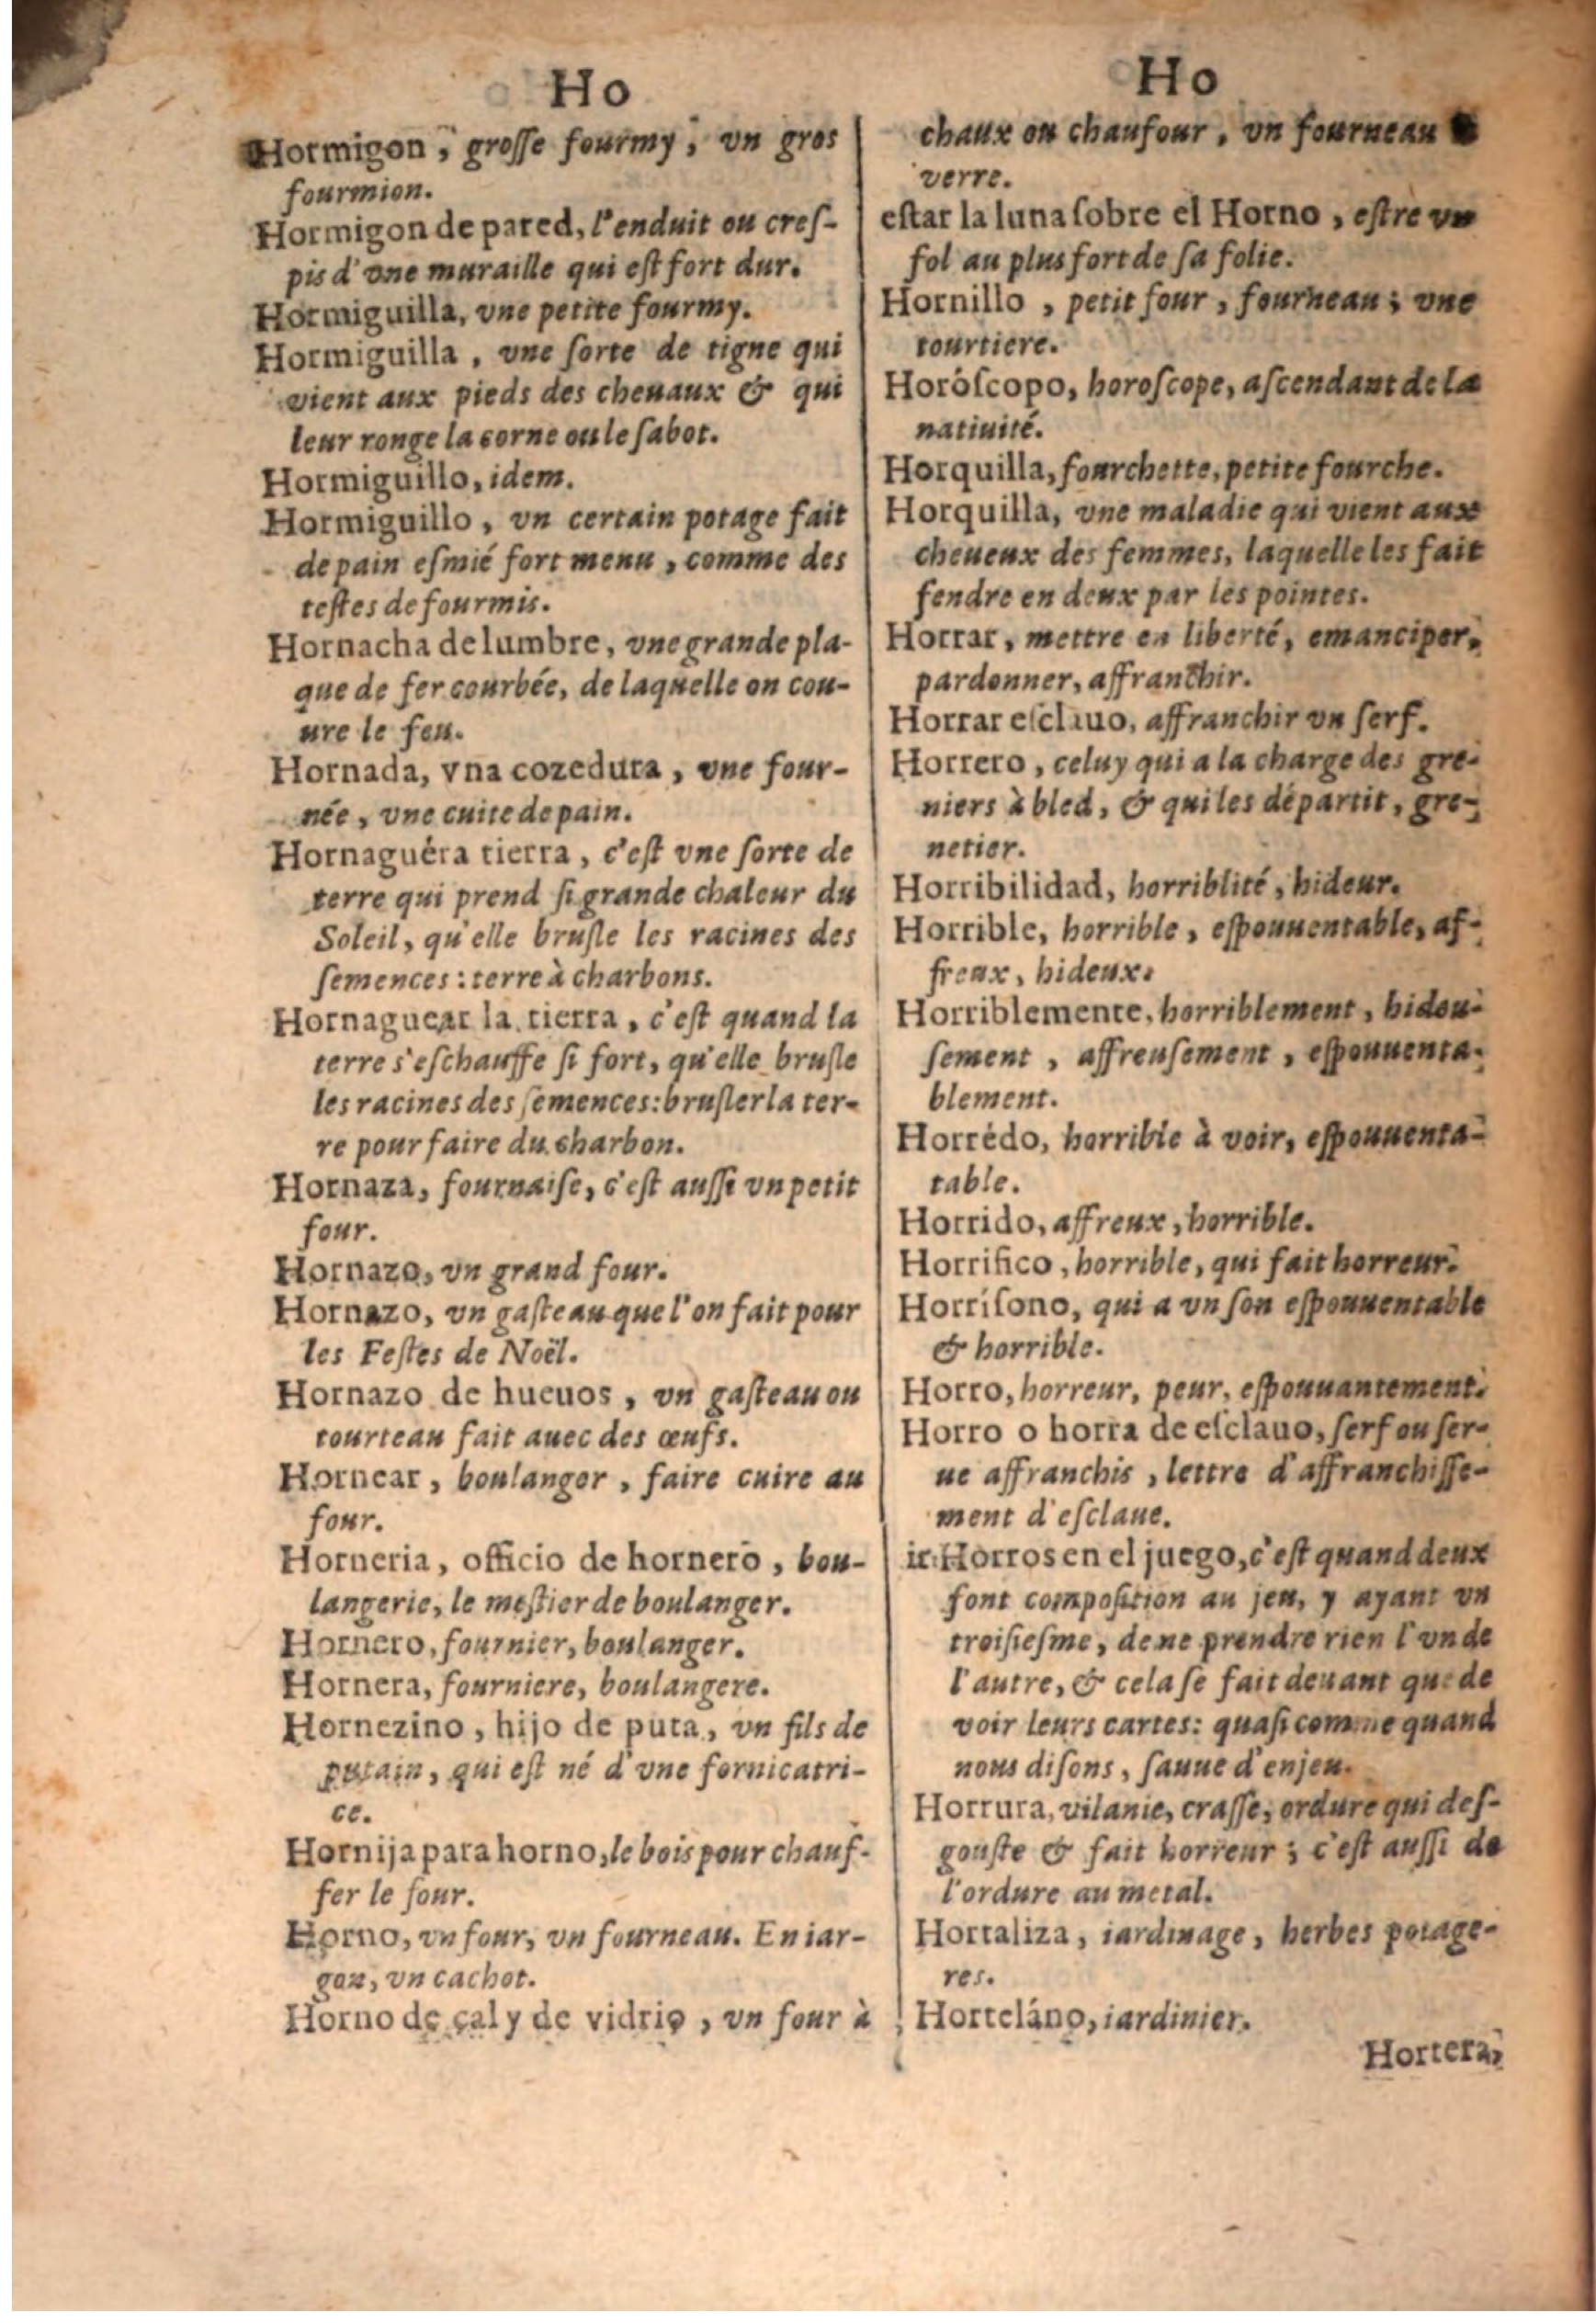 Ho
Hormigon, grosse fourmy, vn gros
fourmion.
Hormigon de pared, l'enduit ou cres-
pis d'vne muraille qui est fort dur.
Hormiguilla, vne petite fourmy.
Hormiguilla, vne sorte de tigne qui
vient aux pieds des cheuaux & qui
leur ronge la corne ou le sabot.
Hormiguillo, idem.
Hormiguillo, vn certain potage fait
de pain esmié fort menu, comme des
testes de fourmis.
Hornacha de lumbre, vne grande pla-
que de fer courbée, de laquelle on cou-
ure le feu.
Hornada, vna cozedura, vne four-
née, vne cuite de pain.
Hornaguéra tierra, c'est vne sorte de
terre qui prend si grande chaleur du
Soleil, qu'elle brusle les racines des
semences: terre à charbons.
Hornaguear la tierra, c'est quand la
terre s'eschauffe si fort, qu'elle brusle
les racines des semences: brusler la ter-
re pour faire du charbon.
Hornaza, fournaise, c'est aussi vn petit
four.
Hornazo, vn grand four.
Hornazo, vn gasteau que l'on fait pour
les Festes de Noël.
Hornazo de hueuos, vn gasteau ou
tourteau fait auec des œufs.
Hornear, boulanger, faire cuire au
four.
Horneria, officio de hornero, bou-
langerie, le mestier de boulanger.
Hornero, fournier, boulanger.
Hornera, fourniere, boulangere.
Hornezino, hijo de puta, vn fils de
putain, qui est né d'vne fornicatri-
ce.
Hornija para horno, le bois pour chauf-
fer le four.
Horno, vn four, vn fourneau. En iar-
gon, vn cachot.
Horno de çal y de vidrio, vn four à
Ho
chaux ou chaufour, vn fourneau
verre.
estar la luna sobre el Horno, estre vn
fol au plus fort de sa folie.
Hornillo, petit four, fourneau; vne
tourtiere.
Horóscopo, horoscope, ascendant de la
natiuité.
Horquilla, fourchette, petite fourche.
Horquilla, vne maladie qui vient aux
cheueux des femmes, laquelle les fait
fendre en deux par les pointes.
Horrar, mettre en liberté, emanciper,
pardonner, affranchir.
Horrar esclauo, affranchir vn serf.
Horrero, celuy qui a la charge des gre-
niers à bled, & qui les départit, gre-
netier.
Horribilidad, horriblité, hideur.
Horrible, horrible, espouuentable, af-
freux, hideux.
Horriblemente, horriblement, hideu-
sement, affreusement, espouuenta-
blement.
Horrédo, horrible à voir, espouuenta-
table.
Horrido, affreux, horrible.
Horrifico, horrible, qui fait horreur.
Horrísono, qui a vn son espouuentable
& horrible.
Horro, horreur, peur, espouuantement.
Horro o horra de esclauo, serf ou ser-
ue affranchis, lettre d'affranchisse-
ment d'esclaue.
ir Horros en el juego, c'est quand deux
font composition au jeu, y ayant vn
troisiesme, de ne prendre rien l'vn de
l'autre, & cela se fait deuant que de
voir leurs cartes: quasi comme quand
nous disons, sauue d'enjeu.
Horrura, vilanie, crasse, ordure qui des-
gouste & fait horreur; c'est aussi de
l'ordure au metal.
Hortaliza, iardinage, herbes potage-
res.
Horteláno, iardinier.
Hortera,